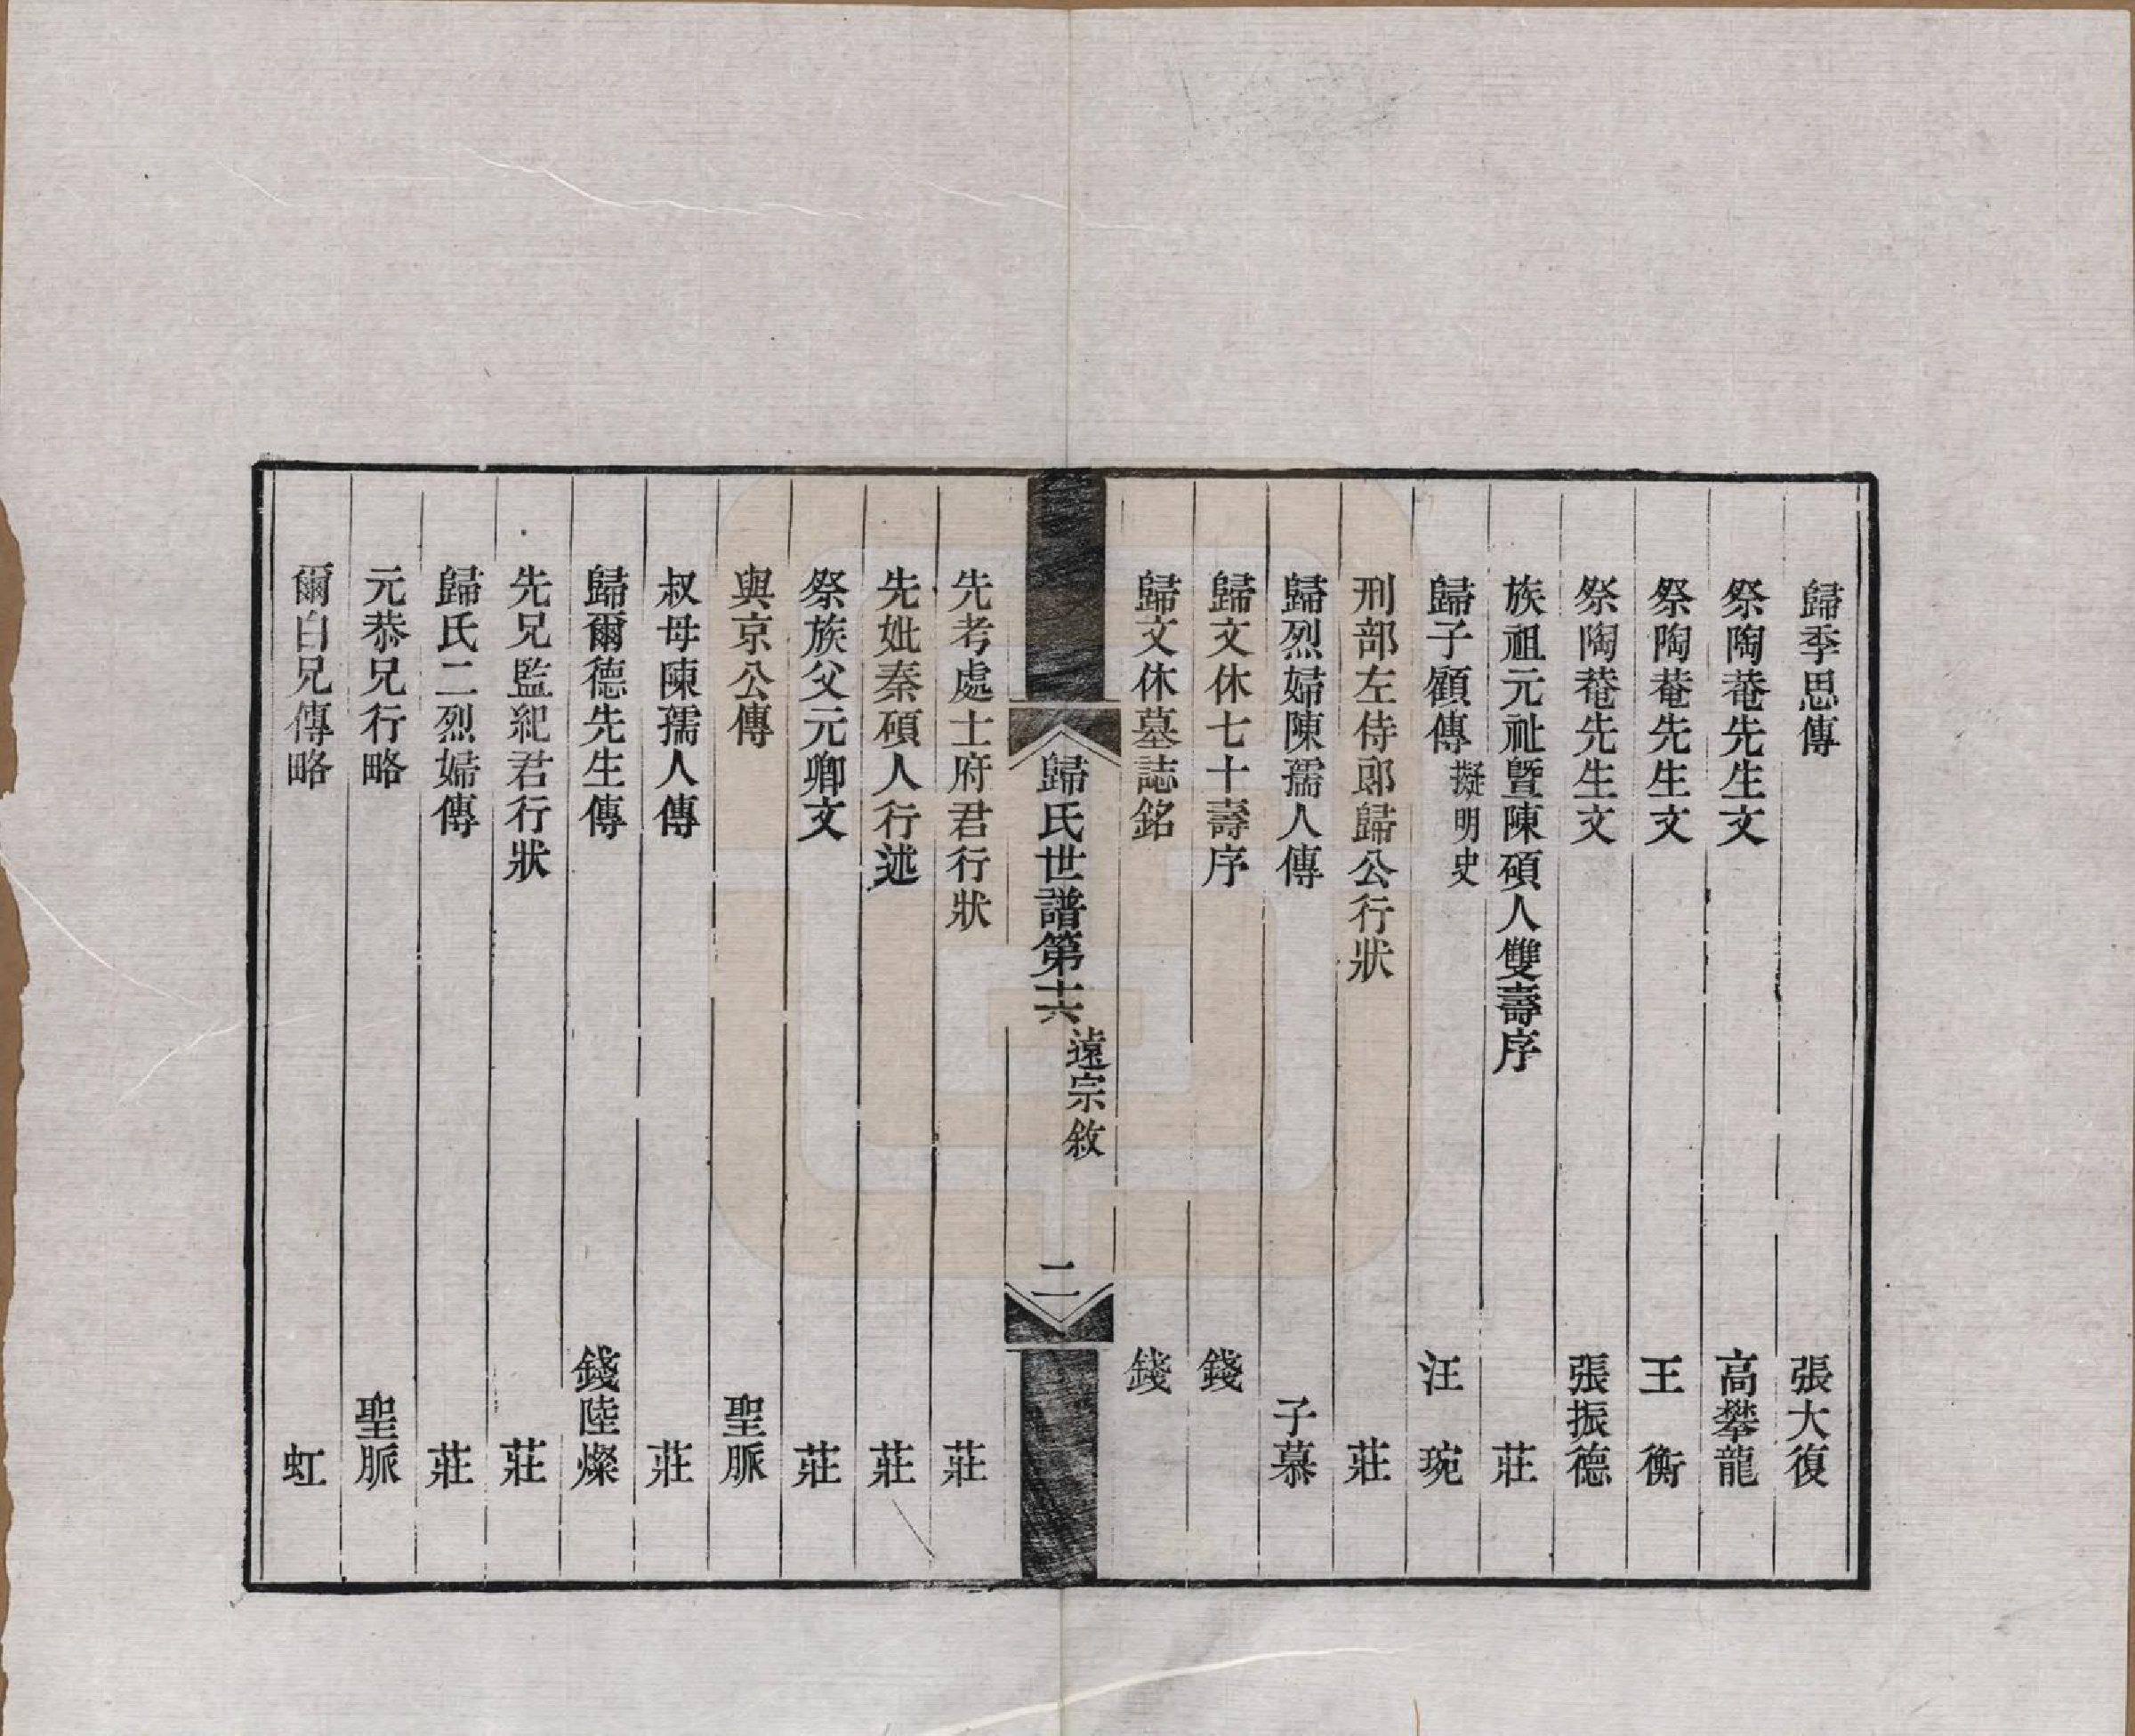 歸季思傳 張大復
祭陶菴先生文 高攀龍
祭陶菴先生文 王衡
祭陶菴先生文 張振德
族祖元祉暨陳碩人雙壽序 莊
歸子顧傳 擬明史 汪琬
刑部左侍郎歸公行狀 莊
歸烈婦陳孺人傳 子慕
歸文休七十壽序 錢
歸文休墓誌銘 錢
歸氏世譜第十六 遠宗敘 二
先考處士府君行狀 莊
先妣秦碩人行述 莊
祭族父元卿文 莊
與京公傳 聖脈
叔母陳孺人傳 莊
歸爾德先生傳 錢陸燦
先兄監紀君行狀 莊
歸氏二烈婦傳 莊
元恭兄行略 聖脈
爾白兄傳略 虹